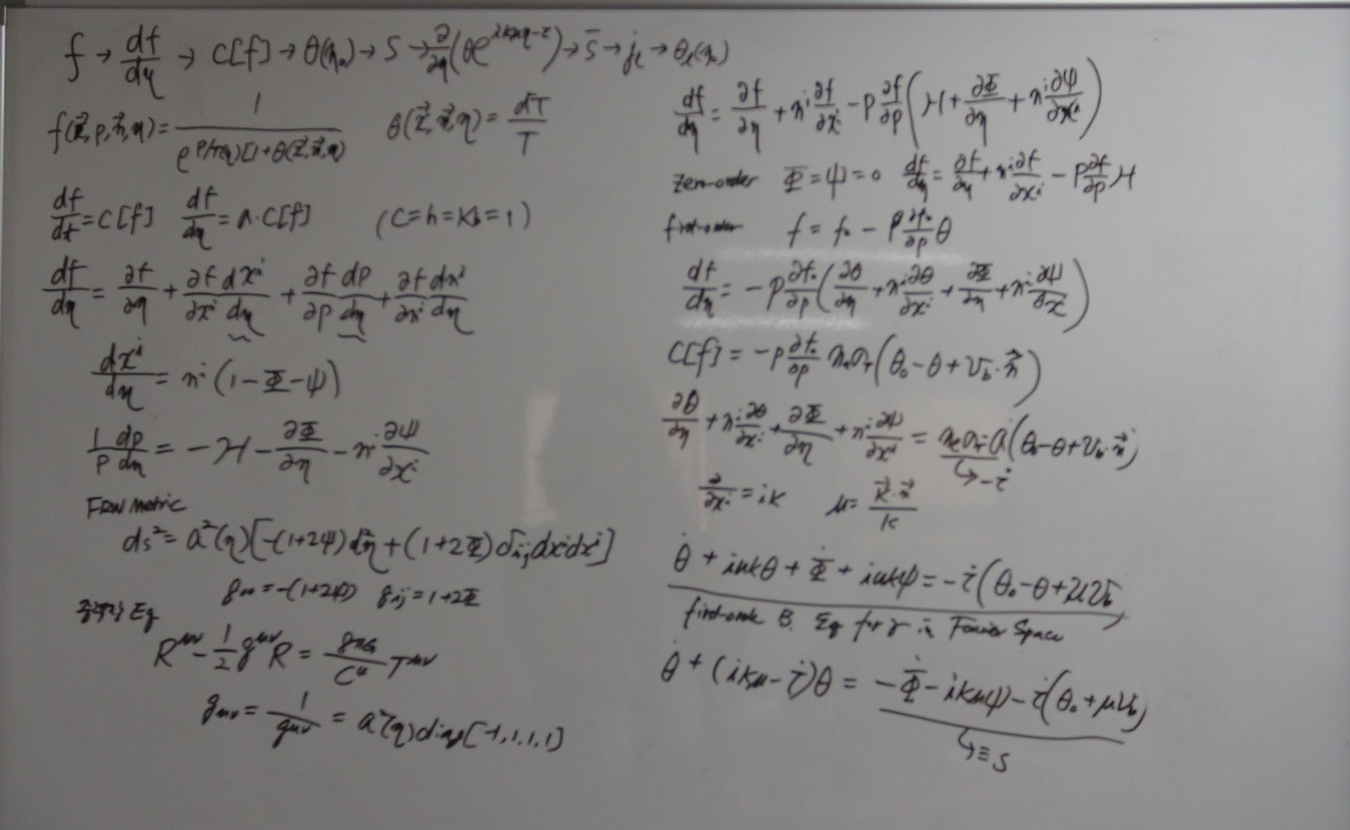 f → df/dη → C[f] → θ(η₀) → S → ∂/∂η(θe^{ikμη-τ}) → S̄ → j_ℓ → θ_ℓ(η₀)
f(x⃗,p,n⃗,η) = 1/(e^{P/T(η)[1+θ(x⃗,n⃗,η)]}) θ(x⃗,n⃗,η) = dT/T
df/dt = C[f] df/dη = a·C[f] (c=h=k_b=1)
df/dη = ∂f/∂η + ∂f/∂xⁱ dxⁱ/dη + ∂f/∂p dp/dη + ∂f/∂nⁱ dnⁱ/dη
dxⁱ/dη = nⁱ(1-Φ-ψ)
1/p dp/dη = -ℋ - ∂Φ/∂η - nⁱ ∂ψ/∂xⁱ
FRW Metric
ds² = a²(η)[-(1+2ψ)d²η + (1+2Φ)δᵢⱼdxⁱdxʲ]
g₀₀ = -(1+2ψ) gᵢⱼ = 1+2Φ
중력장 Eq
R^{μν} - 1/2 g^{μν}R = 8πG/C⁴ T^{μν}
g_{μν} = 1/g^{μν} = a²(η)diag[-1,1,1,1]
df/dη = ∂f/∂η + nⁱ ∂f/∂xⁱ - p ∂f/∂p(ℋ + ∂Φ/∂η + nⁱ ∂ψ/∂xⁱ)
zero-order Φ=ψ=0 df/dη = ∂f/∂η + nⁱ ∂f/∂xⁱ - p ∂f/∂p ℋ
first-order f = f₀ - p ∂f₀/∂p θ
df/dη = -p ∂f₀/∂p(∂θ/∂η + nⁱ ∂θ/∂xⁱ + ∂Φ/∂η + nⁱ ∂ψ/∂x)
C[f] = -p ∂f₀/∂p nₑσ_T(θ₀ - θ + v_b·n⃗)
∂θ/∂η + nⁱ ∂θ/∂xⁱ + ∂Φ/∂η + nⁱ ∂ψ/∂xⁱ = nₑσ_T a(θ₀-θ+v_b·n⃗)
↳ -τ̇
∂/∂xⁱ = ik μ = k⃗·n⃗/k
θ̇ + iμkθ + Φ̇ + iμkψ = -τ̇(θ₀-θ+μv_b)
first-order B. Eq for γ in Fourier Space
θ̇ + (ikμ-τ̇)θ = -Φ̇ - ikμψ - τ̇(θ₀+μv_b)
↳ ≡ S